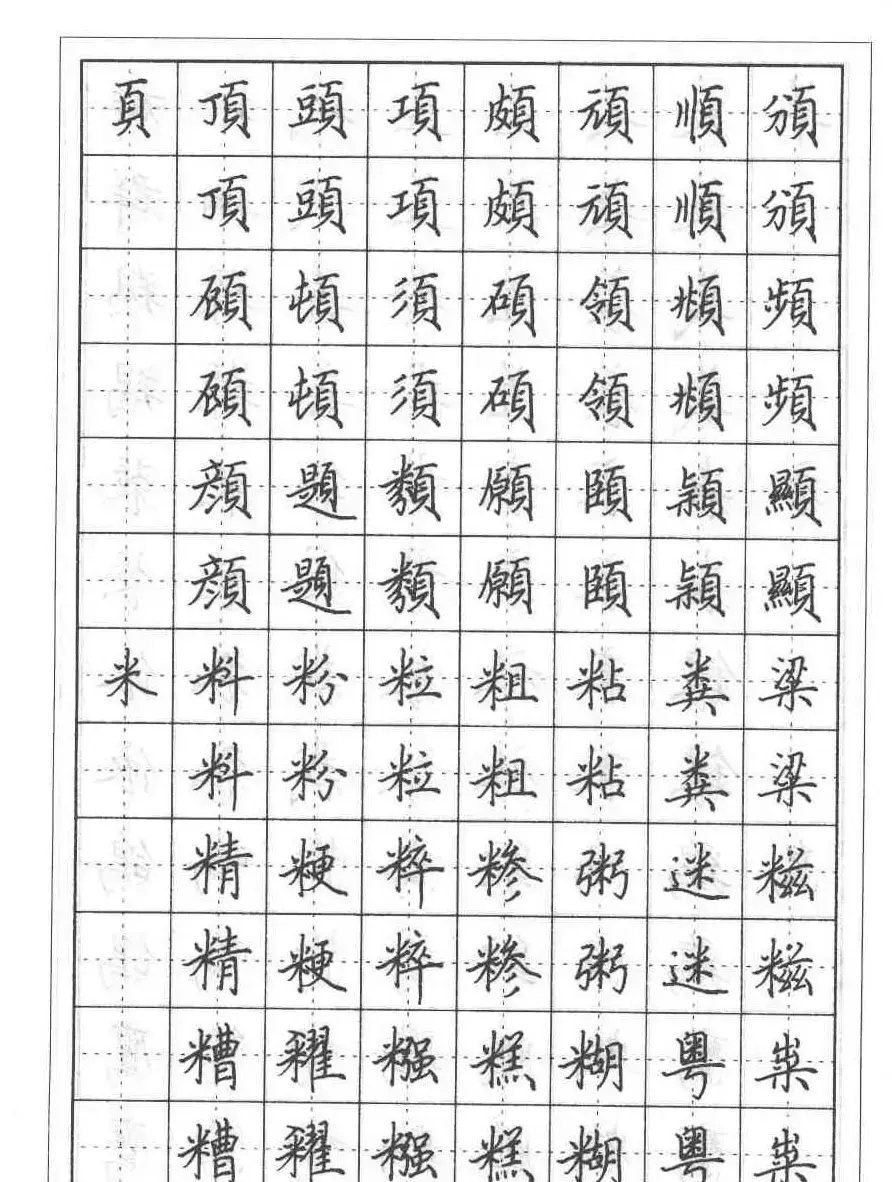 頁 頂 頭 項 頗 頑 順 頒
頂 頭 項 頗 頑 順 頒
頎 頓 須 碩 領 頫 頻
頎 頓 須 碩 領 頫 頻
顔 題 類 願 頤 穎 顯
顔 題 類 願 頤 穎 顯
米 料 粉 粒 粗 粘 糞 粱
料 粉 粒 粗 粘 糞 粱
精 粳 粹 糝 粥 迷 糍
精 粳 粹 糝 粥 迷 糍
糟 糴 糨 糕 糊 粵
糟 糴 糨 糕 糊 粵